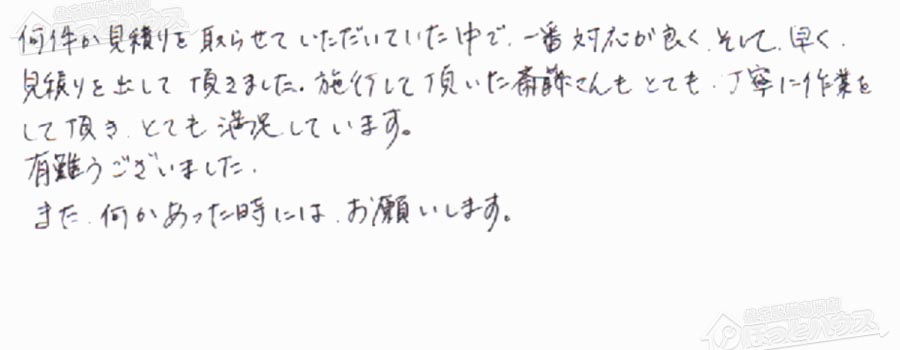 何件か見積りを取らせていただいていた中で、一番対応が良く、そして、早く、
見積りを出して頂きました。施行して頂いた斎藤さんもとても、丁寧に作業を
して頂き、とても満足しています。
有難うございました。
また、何かあった時には、お願いします。
住宅設備専門店
ほっとハウス